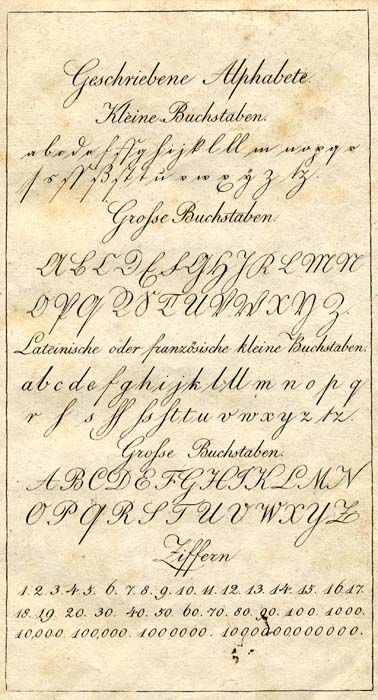 Geschriebene Alphabete.
Kleine Buchstaben.
a b c d e f ff g h i j k l ll m n o p q r
ſ s ſſ ß ſt t u v w x y z tz.
Grosse Buchstaben.
A B C D E F G H I K L M N
O P Q R S T U V W X Y Z.
Lateinische oder französische kleine Buchstaben.
a b c d e f g h i j k l ll m n o p q
r ſ s ſſ ſs ſt t u v w x y z tz.
Grosse Buchstaben.
A B C D E F G H I K L M N
O P Q R S T U V W X Y Z
Ziffern
1. 2. 3. 4. 5. 6. 7. 8. 9. 10. 11. 12. 13. 14. 15. 16. 17.
18. 19. 20. 30. 40. 50. 60. 70. 80. 90. 100. 1000.
10,000. 100,000. 1000000. 1000000000000.